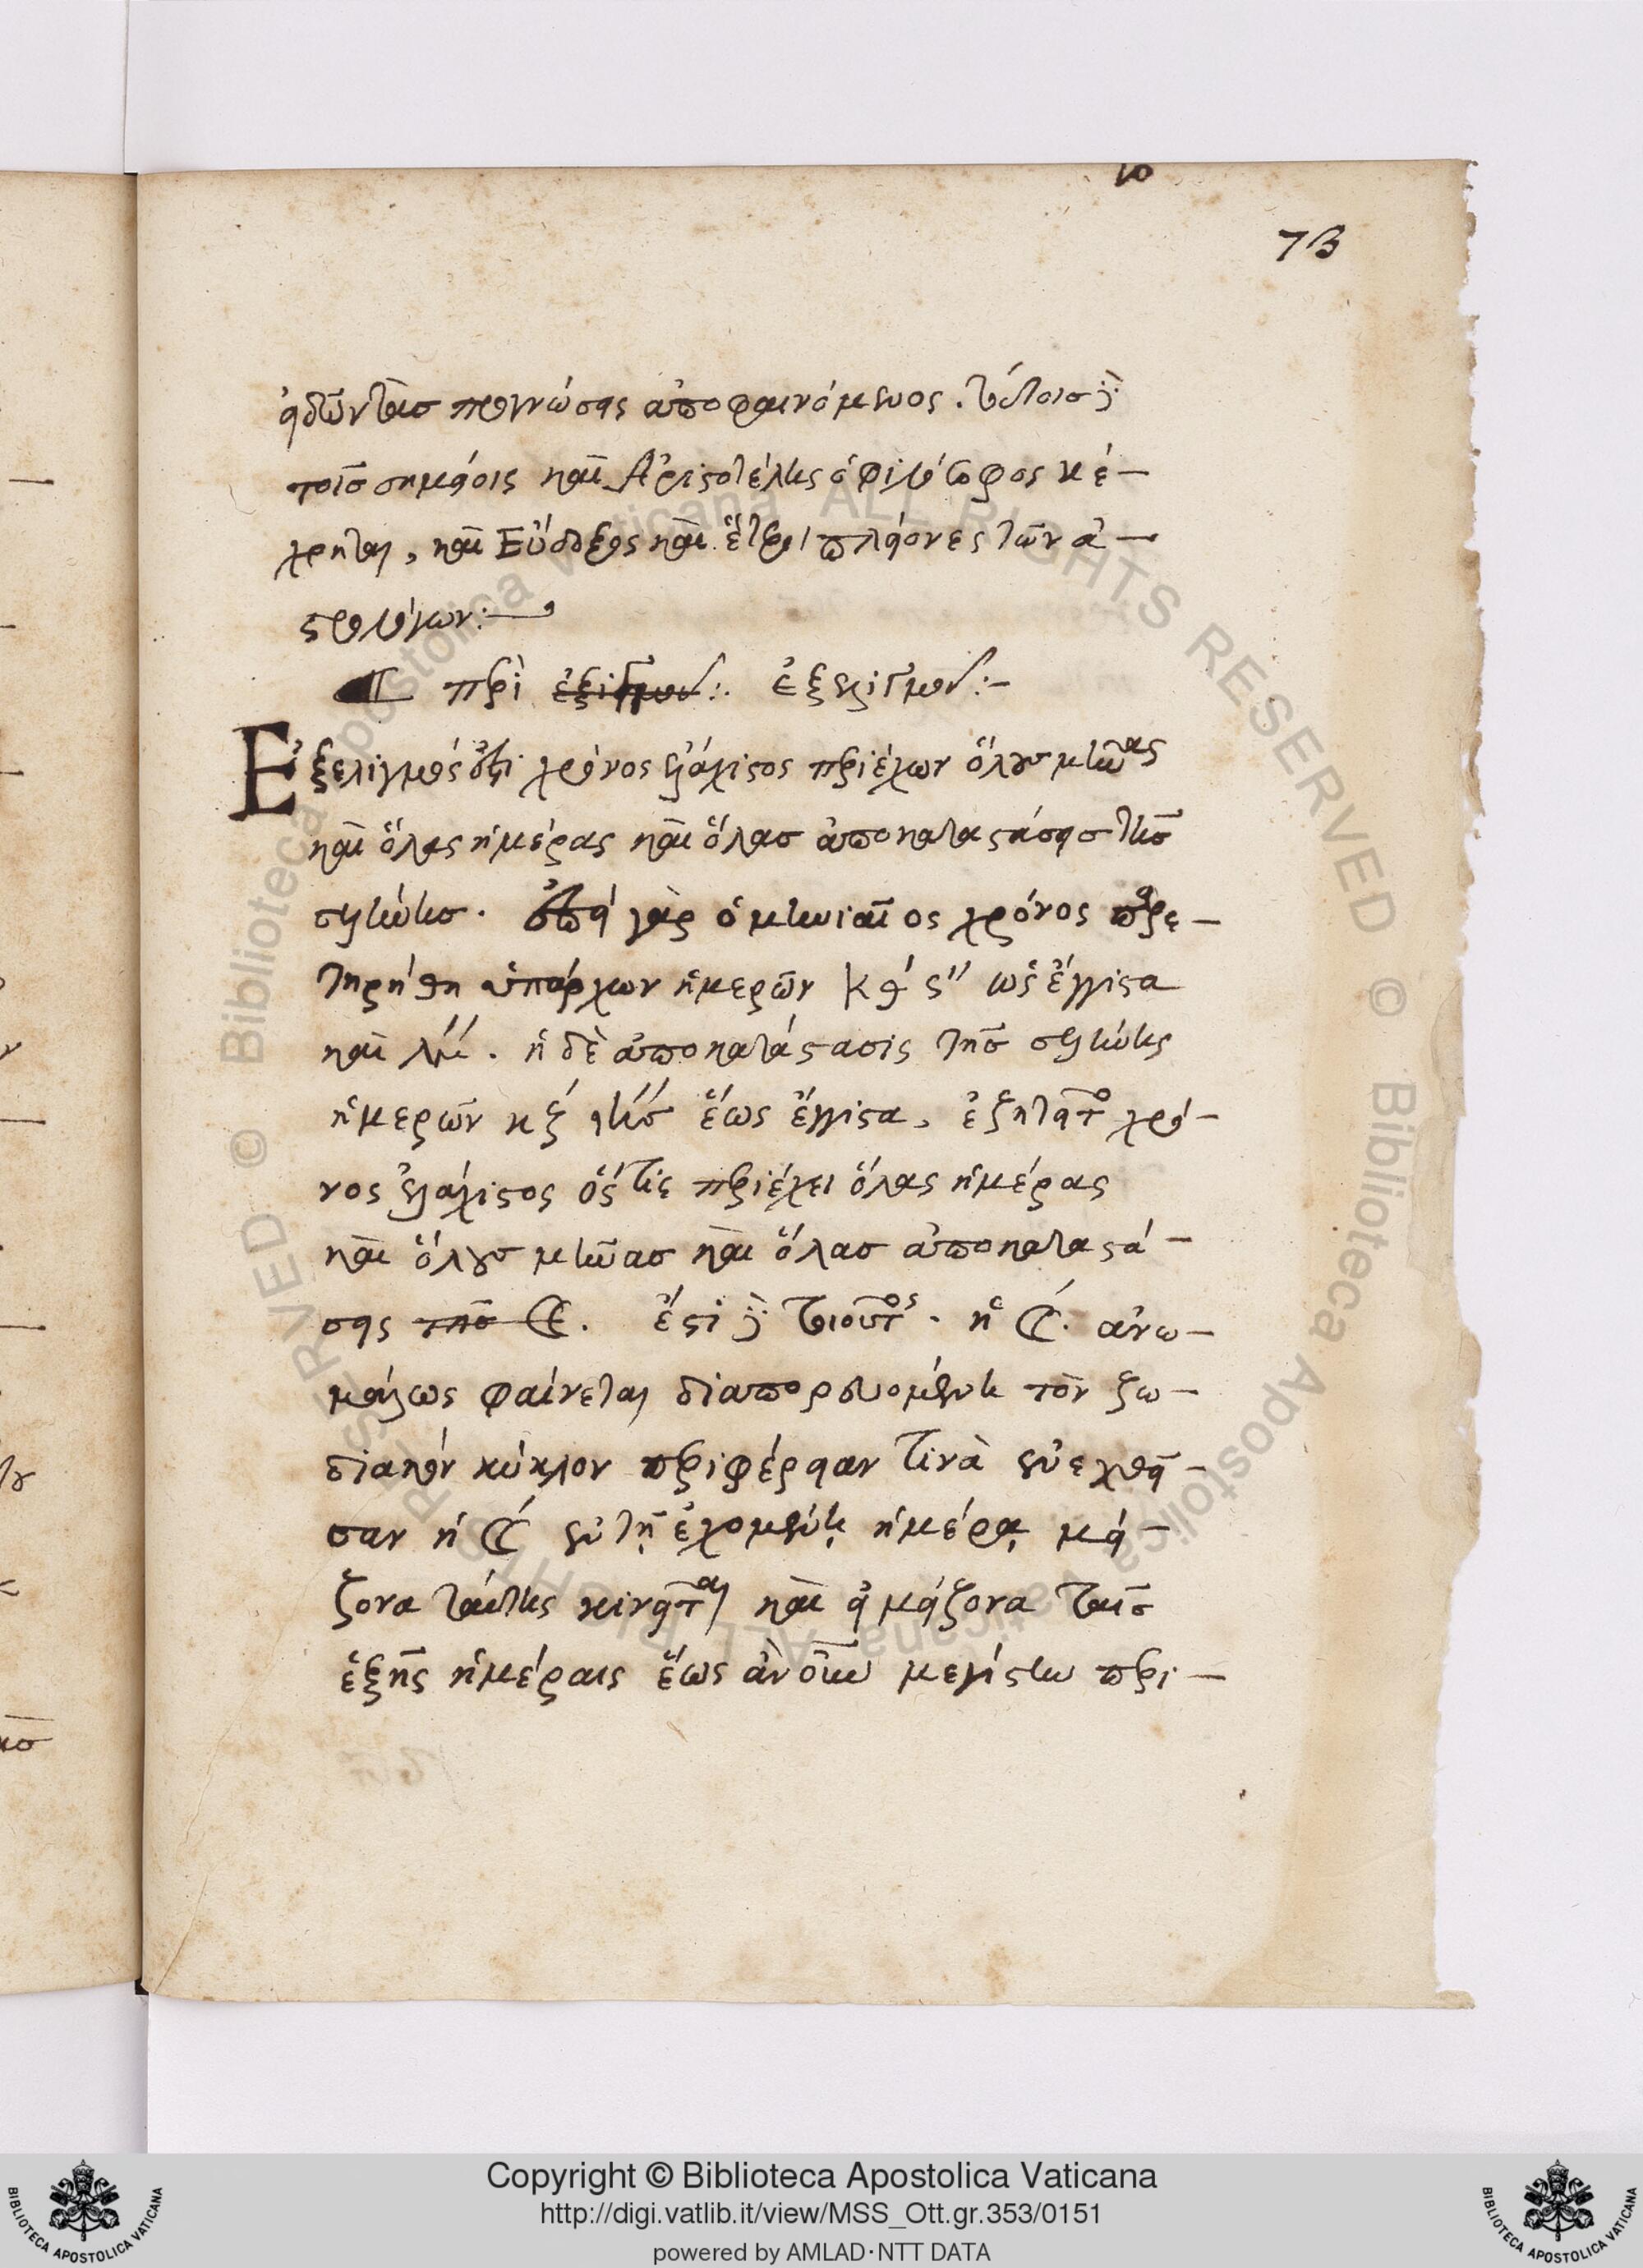 73
ᾁδῶν τὰσ προγνώσεις ἀποφαινόμενος. τούτοισ δὲ
τοῖσ σημείοις καὶ Ἀριστοτέλης ὁ φιλόσοφος κέ—
χρηται, καὶ Εὔδοξος καὶ ἕτεροι πλείονες τῶν ἀ—
στρολόγων:—
περὶ ἐξελιγμοῦ:—
Ἐξελιγμός ἐστι χρόνος ἐλάχιστος περιέχων ὅλουσ μῆνας
καὶ ὅλας ἡμέρας καὶ ὅλασ ἀποκαταστάσεισ τῆσ
σελήνησ. ἐπεὶ γὰρ ὁ μηνιαῖος χρόνος παρε—
τηρήθη ὑπάρχων ἡμερῶν κθ ́ ς ́ ́ ὡς ἔγγιστα
καὶ λγ ́ ́. ἡ δὲ ἀποκατάστασις τῆσ σελήνης
ἡμερῶν κζ ́ ἕως ἔγγιστα, ἐζητεῖτο χρό—
νος ἐλάχιστος ὅς τις περιέχει ὅλας ἡμέρας
καὶ ὅλουσ μῆνασ καὶ ὅλασ ἀποκαταστά—
σεις τῆσ ☾. ἔστι δὲ τοιοῦτος. ἡ ☾. ἀνω—
μάλως φαίνεται διαπορευομένη τὸν ζω—
διακὸν κύκλον περιφέρειαν τινὰ ἐνεχθεῖ—
σαν ἡ ☾ ἐν τῇ ἐχομένῃ ἡμέρᾳ μεί—
ζονα ταύτης κινεῖται καὶ ἀεὶ μείζονα ταῖσ
ἑξῆς ἡμέραις ἕως ἂν οὗ τὴν μεγίστην περι—
Copyright © Biblioteca Apostolica Vaticana
http://digi.vatlib.it/view/MSS_Ott.gr.353/0151
powered by AMLAD·NTT DATA